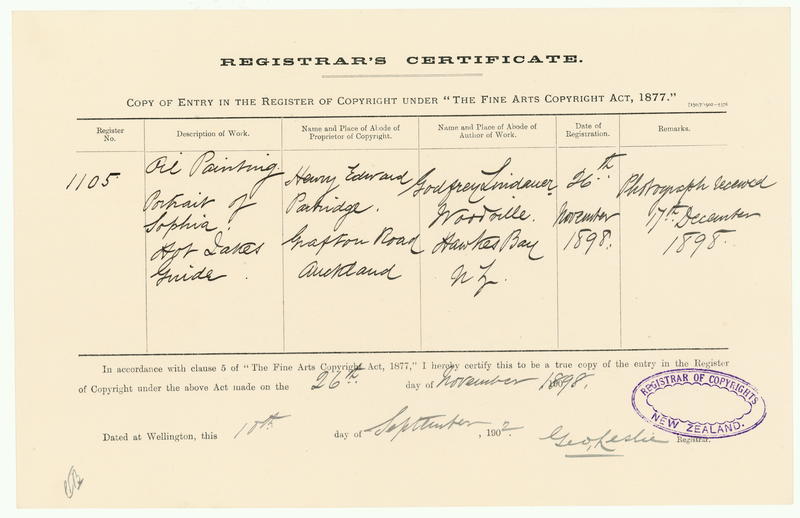 REGISTRAR'S CERTIFICATE.
COPY OF ENTRY IN THE REGISTER OF COPYRIGHT UNDER "THE FINE ARTS COPYRIGHT ACT, 1877."
Register No.
Description of Work.
Name and Place of Abode of Proprietor of Copyright.
Name and Place of Abode of Author of Work.
Date of Registration.
Remarks.
1105.
Oil Painting.
Portrait of
Sophia.
Hot Lakes
Guide.
Henry Edward
Partridge.
Grafton Road
Auckland
Godfrey Lindauer
Woodville.
Hawkes Bay
N Z.
26th
November
1898.
Photograph received
17th December
1898.
In accordance with clause 5 of "The Fine Arts Copyright Act, 1877," I hereby certify this to be a true copy of the entry in the Register
of Copyright under the above Act made on the 26th day of November 1898.
REGISTRAR OF COPYRIGHTS
NEW ZEALAND.
Dated at Wellington, this 10th day of September, 1902.
Geo. Leslie Registrar.